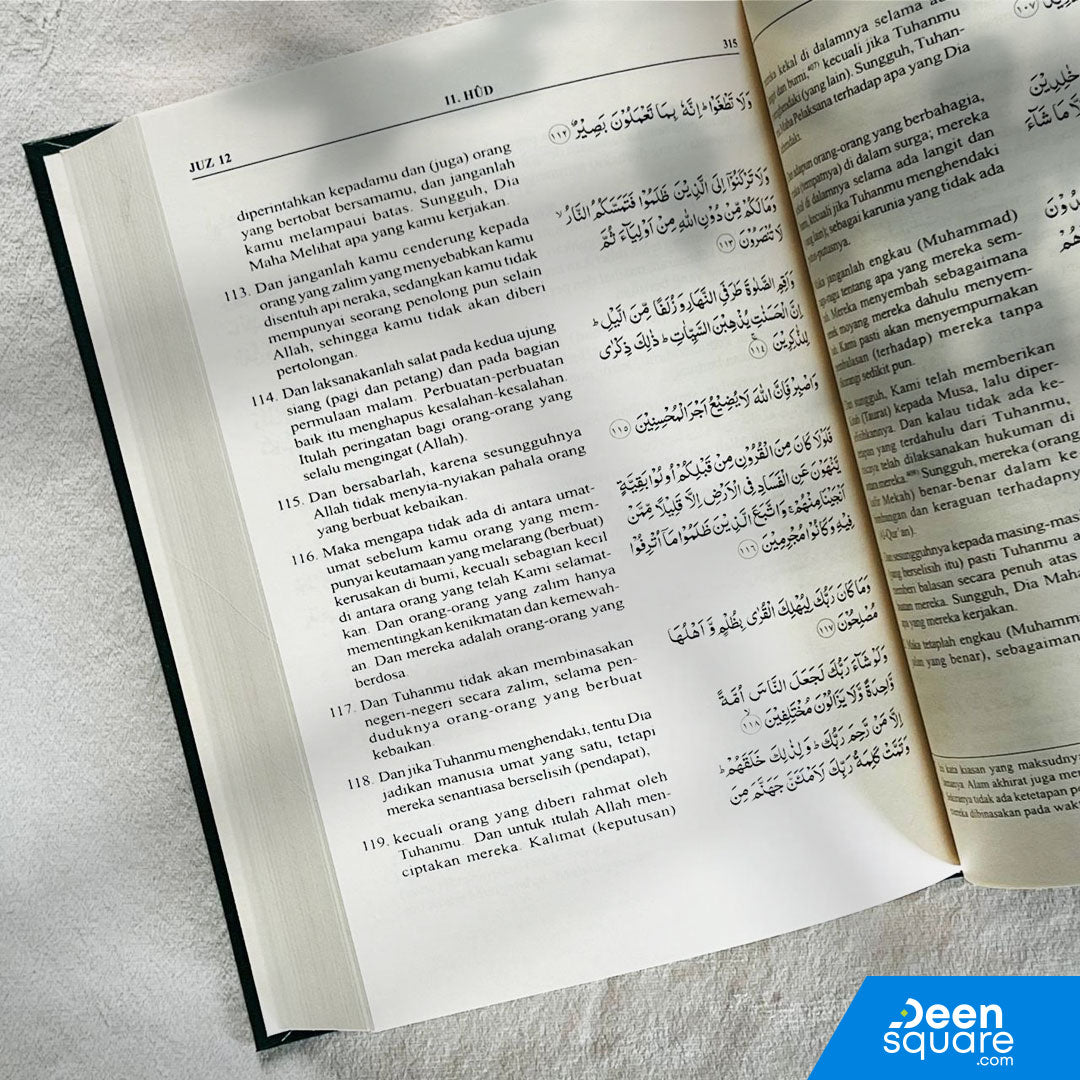 JUZ 12
11. HÛD
315
diperintahkan kepadamu dan (juga) orang
yang bertobat bersamamu, dan janganlah
kamu melampaui batas. Sungguh, Dia
Maha Melihat apa yang kamu kerjakan.
113. Dan janganlah kamu cenderung kepada
orang yang zalim yang menyebabkan kamu
disentuh api neraka, sedangkan kamu tidak
mempunyai seorang penolong pun selain
Allah, sehingga kamu tidak akan diberi
pertolongan.
114. Dan laksanakanlah salat pada kedua ujung
siang (pagi dan petang) dan pada bagian
permulaan malam. Perbuatan-perbuatan
baik itu menghapus kesalahan-kesalahan.
Itulah peringatan bagi orang-orang yang
selalu mengingat (Allah).
115. Dan bersabarlah, karena sesungguhnya
Allah tidak menyia-nyiakan pahala orang
yang berbuat kebaikan.
116. Maka mengapa tidak ada di antara umat-
umat sebelum kamu orang yang mem-
punyai keutamaan yang melarang (berbuat)
kerusakan di bumi, kecuali sebagian kecil
di antara orang yang telah Kami selamat-
kan. Dan orang-orang yang zalim hanya
mementingkan kenikmatan dan kemewah-
an. Dan mereka adalah orang-orang yang
berdosa.
117. Dan Tuhanmu tidak akan membinasakan
negeri-negeri secara zalim, selama pen-
duduknya orang-orang yang berbuat
kebaikan.
118. Dan jika Tuhanmu menghendaki, tentu Dia
jadikan manusia umat yang satu, tetapi
mereka senantiasa berselisih (pendapat),
119. kecuali orang yang diberi rahmat oleh
Tuhanmu. Dan untuk itulah Allah men-
ciptakan mereka. Kalimat (keputusan)
وَلَا تَطْغَوْا ۗ اِنَّهٗ بِمَا تَعْمَلُوْنَ بَصِيْرٌ ١١٢
وَلَا تَرْكَنُوْٓا اِلَى الَّذِيْنَ ظَلَمُوْا فَتَمَسَّكُمُ النَّارُۙ
وَمَا لَكُمْ مِّنْ دُوْنِ اللّٰهِ مِنْ اَوْلِيَاۤءَ ثُمَّ
لَا تُنْصَرُوْنَ ١١٣
وَاَقِمِ الصَّلٰوةَ طَرَفَيِ النَّهَارِ وَزُلَفًا مِّنَ الَّيْلِ ۗ
اِنَّ الْحَسَنٰتِ يُذْهِبْنَ السَّيِّاٰتِ ۗ ذٰلِكَ ذِكْرٰى
لِلذّٰكِرِيْنَ ١١٤
وَاصْبِرْ فَاِنَّ اللّٰهَ لَا يُضِيْعُ اَجْرَ الْمُحْسِنِيْنَ ١١٥
فَلَوْلَا كَانَ مِنَ الْقُرُوْنِ مِنْ قَبْلِكُمْ اُولُوْا بَقِيَّةٍ
يَّنْهَوْنَ عَنِ الْفَسَادِ فِى الْاَرْضِ اِلَّا قَلِيْلًا مِّمَّنْ
اَنْجَيْنَا مِنْهُمْ ۚ وَاتَّبَعَ الَّذِيْنَ ظَلَمُوْا مَآ اُتْرِفُوْا
فِيْهِ وَكَانُوْا مُجْرِمِيْنَ ١١٦
وَمَا كَانَ رَبُّكَ لِيُهْلِكَ الْقُرٰى بِظُلْمٍ وَّاَهْلُهَا
مُصْلِحُوْنَ ١١٧
وَلَوْ شَاۤءَ رَبُّكَ لَجَعَلَ النَّاسَ اُمَّةً
وَّاحِدَةً وَّلَا يَزَالُوْنَ مُخْتَلِفِيْنَۙ ١١٨
اِلَّا مَنْ رَّحِمَ رَبُّكَ ۗ وَلِذٰلِكَ خَلَقَهُمْ ۗ
وَتَمَّتْ كَلِمَةُ رَبِّكَ لَاَمْلَـَٔنَّ جَهَنَّمَ مِنَ
kekal di dalamnya selama
dan bumi,⁴⁰⁷⁾ kecuali jika Tuhanmu
(yang lain). Sungguh, Tuhan-
Maha Pelaksana terhadap apa yang Dia
adapun orang-orang yang berbahagia,
(tempatnya) di dalam surga; mereka
di dalamnya selama ada langit dan
kecuali jika Tuhanmu menghendaki
sebagai karunia yang tidak ada
janganlah engkau (Muhammad)
tentang apa yang mereka sem-
Mereka menyembah sebagaimana
moyang mereka dahulu menyem-
Kami pasti akan menyempurnakan
(terhadap) mereka tanpa
sedikit pun.
sungguh, Kami telah memberikan
(Taurat) kepada Musa, lalu diper-
Dan kalau tidak ada ke-
yang terdahulu dari Tuhanmu,
telah dilaksanakan hukuman di
mereka.⁴⁰⁸⁾ Sungguh, mereka (orang
Mekah) benar-benar dalam ke
dan keraguan terhadapnya
sesungguhnya kepada masing-mas
(yang berselisih itu) pasti Tuhanmu
balasan secara penuh atas
mereka. Sungguh, Dia Maha
apa yang mereka kerjakan.
tetaplah engkau (Muhamm
yang benar), sebagaiman
١٠٧
خٰلِدِيْنَ
مَا شَاۤءَ
kata kiasan yang maksudny
Alam akhirat juga
tidak ada ketetapan
mereka dibinasakan pada wak
Deen
square
.com